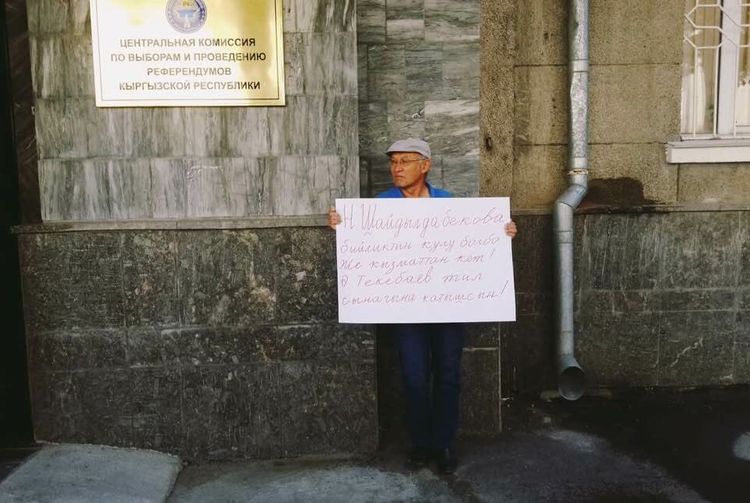 ЦЕНТРАЛЬНАЯ КОМИССИЯ
ПО ВЫБОРАМ И ПРОВЕДЕНИЮ
РЕФЕРЕНДУМОВ
КЫРГЫЗСКОЙ РЕСПУБЛИКИ
Н Шайдылдабекова
бийликтин кулу болбо
же кызматтан кет!
Ө Текебаев тил
сынагына катышсын!